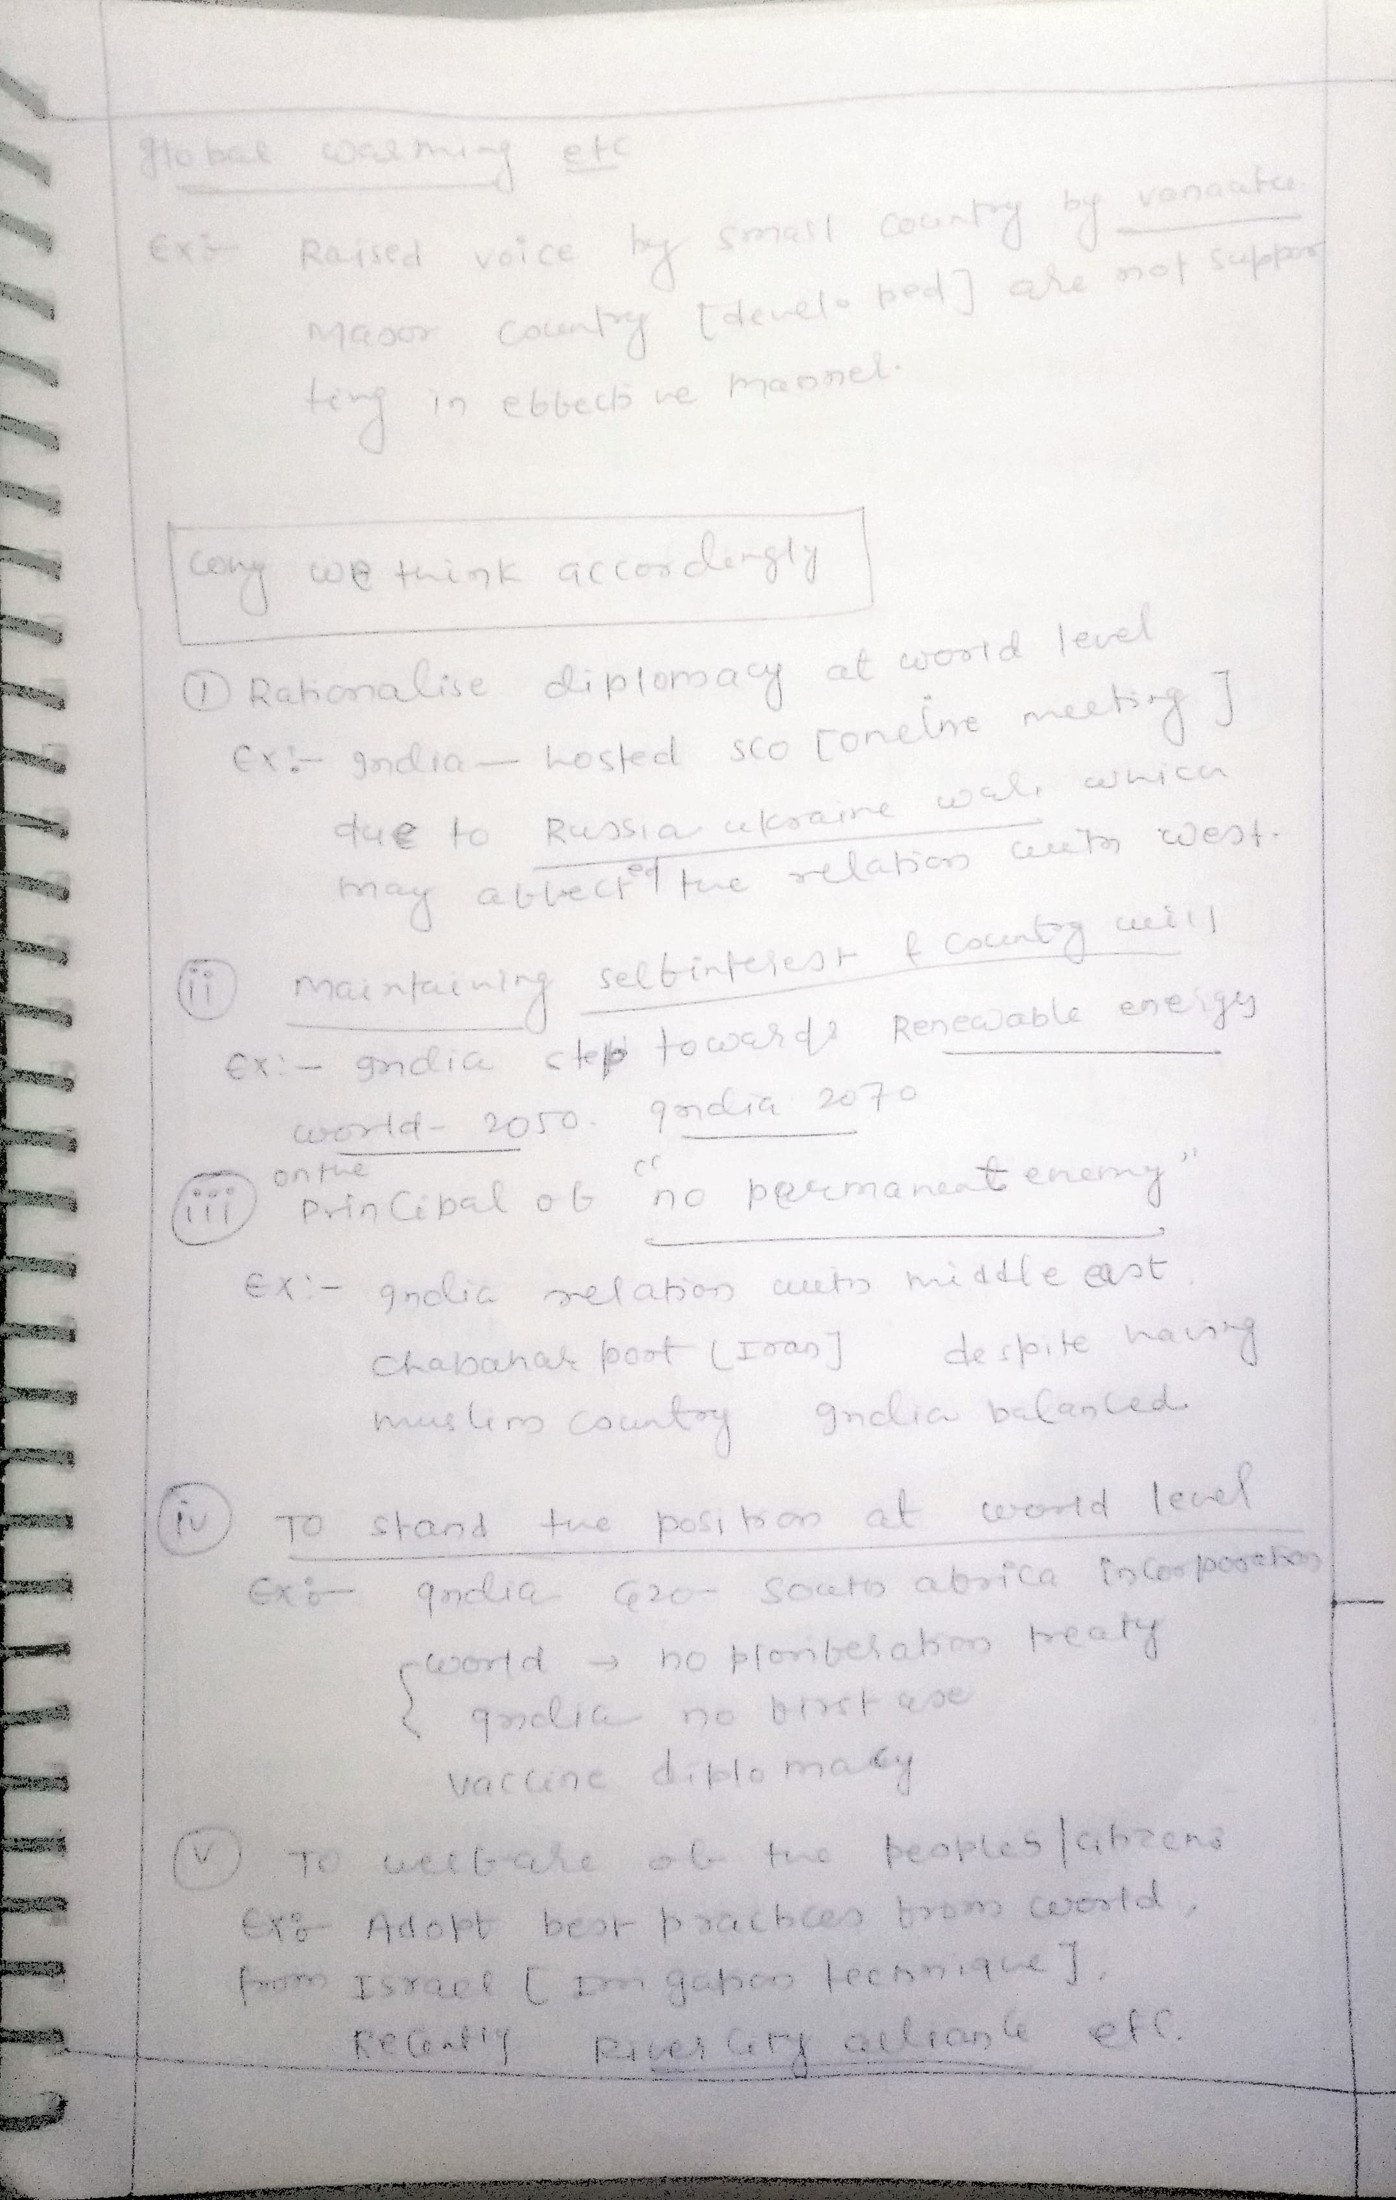 global warming etc
Ex:- Raised voice by small country by vanaatu
Major country [developed] are not suppor
ting in effective manner.
Why we think accordingly
① Rationalise diplomacy at world level
Ex:- India - hosted SCO [online meeting]
due to Russia ukraine war, which
may affected the relation with west.
ii Maintaining self interest & country will
Ex:- India step towards Renewable energy
world - 2050. India 2070
iii on the Principal of "no permanent enemy"
Ex:- India relation with middle east
Chabahar port [Iran] despite having
muslim country India balanced.
iv To stand the position at world level
Ex:- India G20 - South africa incorporation
world → no proliferation treaty
India no first use
vaccine diplomacy
v To welfare of the peoples/citizens
Ex:- Adopt best practices from world,
from Israel [Irrigation technique],
Recently River City alliance etc.